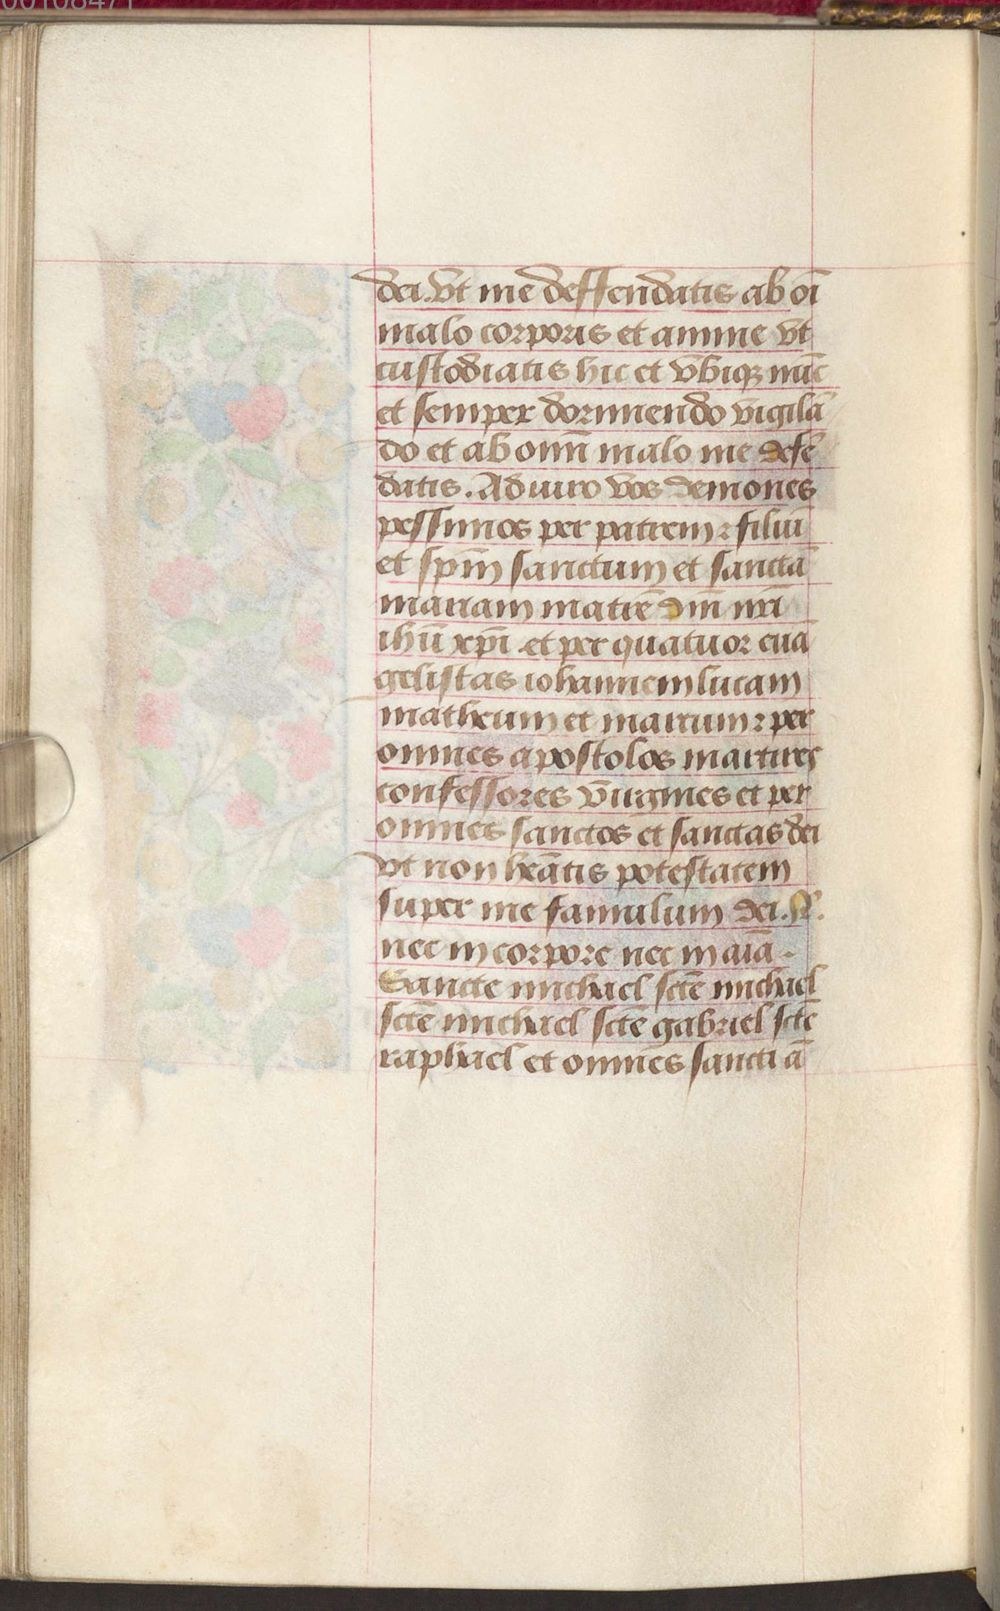 00108471
dei. Vt me deffendatis ab oī
malo corporis et anime vt
custodiatis hic et vbiqꝫ nūc
et semper dormiendo vigilā
do et ab omni malo me defē
datis. Adiuro vos demones
pessimos per patrem ⁊ filiū
et spm̄ sanctum et sanctā
mariam matrē dn̄i nr̄i
ihū xp̄i et per quatuor euā
gelistas iohannem lucam
matheum et marcum ⁊ per
omnes apostolos martires
confessores virgines et per
omnes sanctos et sanctas dei
vt non heātis potestatem
super me famulum dei. N.
nec in corpore nec in aīa.
Sancte michael sctē michael
sctē michael sctē gabriel sctē
raphael et omnes sancti ā